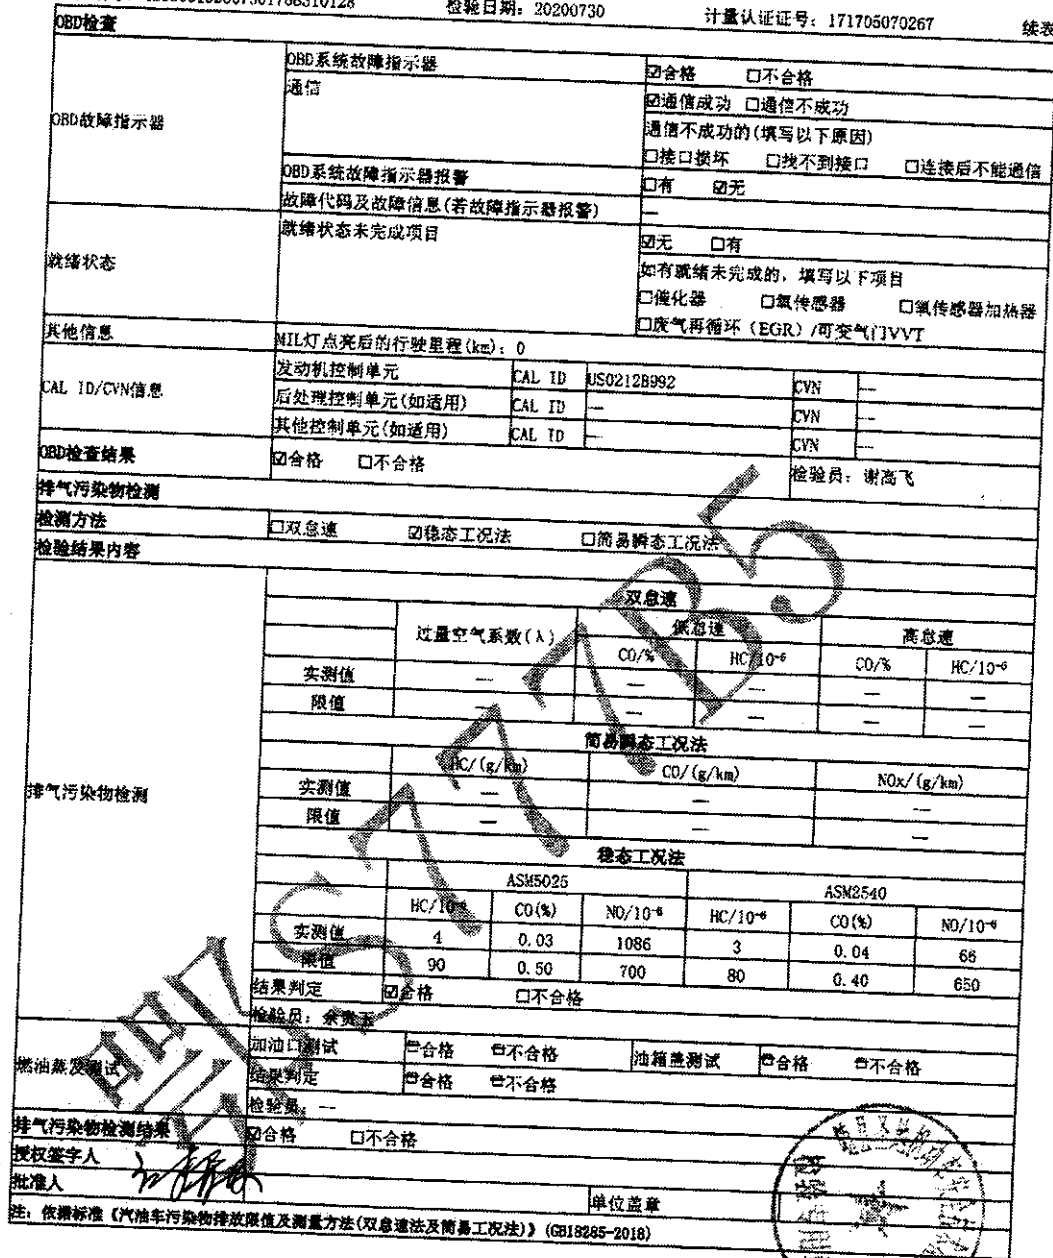 检验日期：20200730 计量认证证号：171705070267 续表
OBD检查
OBD故障指示器
OBD系统故障指示器 ☑合格 □不合格
通信 ☑通信成功 □通信不成功
通信不成功的(填写以下原因)
□接口损坏 □找不到接口 □连接后不能通信
OBD系统故障指示器报警 □有 ☑无
故障代码及故障信息(若故障指示器报警) —
就绪状态
就绪状态未完成项目 ☑无 □有
如有就绪未完成的，填写以下项目
□催化器 □氧传感器 □氧传感器加热器
□废气再循环（EGR）/可变气门VVT
其他信息 MIL灯点亮后的行驶里程(km)：0
CAL ID/CVN信息
发动机控制单元 CAL ID US0212B992 CVN ---
后处理控制单元(如适用) CAL ID --- CVN ---
其他控制单元(如适用) CAL ID --- CVN ---
OBD检查结果 ☑合格 □不合格 检验员：谢高飞
排气污染物检测
检测方法 □双怠速 ☑稳态工况法 □简易瞬态工况法
检验结果内容
排气污染物检测
双怠速
过量空气系数(λ) 低怠速 高怠速
CO/% HC/10-6 CO/% HC/10-6
实测值 — — — — —
限值 — — — — —
简易瞬态工况法
HC/(g/km) CO/(g/km) NOx/(g/km)
实测值 — — —
限值 — — —
稳态工况法
ASM5025 ASM2540
HC/10-6 CO(%) NO/10-6 HC/10-6 CO(%) NO/10-6
实测值 4 0.03 1086 3 0.04 66
限值 90 0.50 700 80 0.40 650
结果判定 ☑合格 □不合格
检验员：余贵玉
燃油蒸发测试
加油口测试 合格 不合格 油箱盖测试 合格 不合格
结果判定 合格 不合格
检验员：---
排气污染物检测结果 ☑合格 □不合格
授权签字人
批准人 单位盖章
注：依据标准《汽油车污染物排放限值及测量方法(双怠速法及简易工况法)》(GB18285-2018)
S777B5